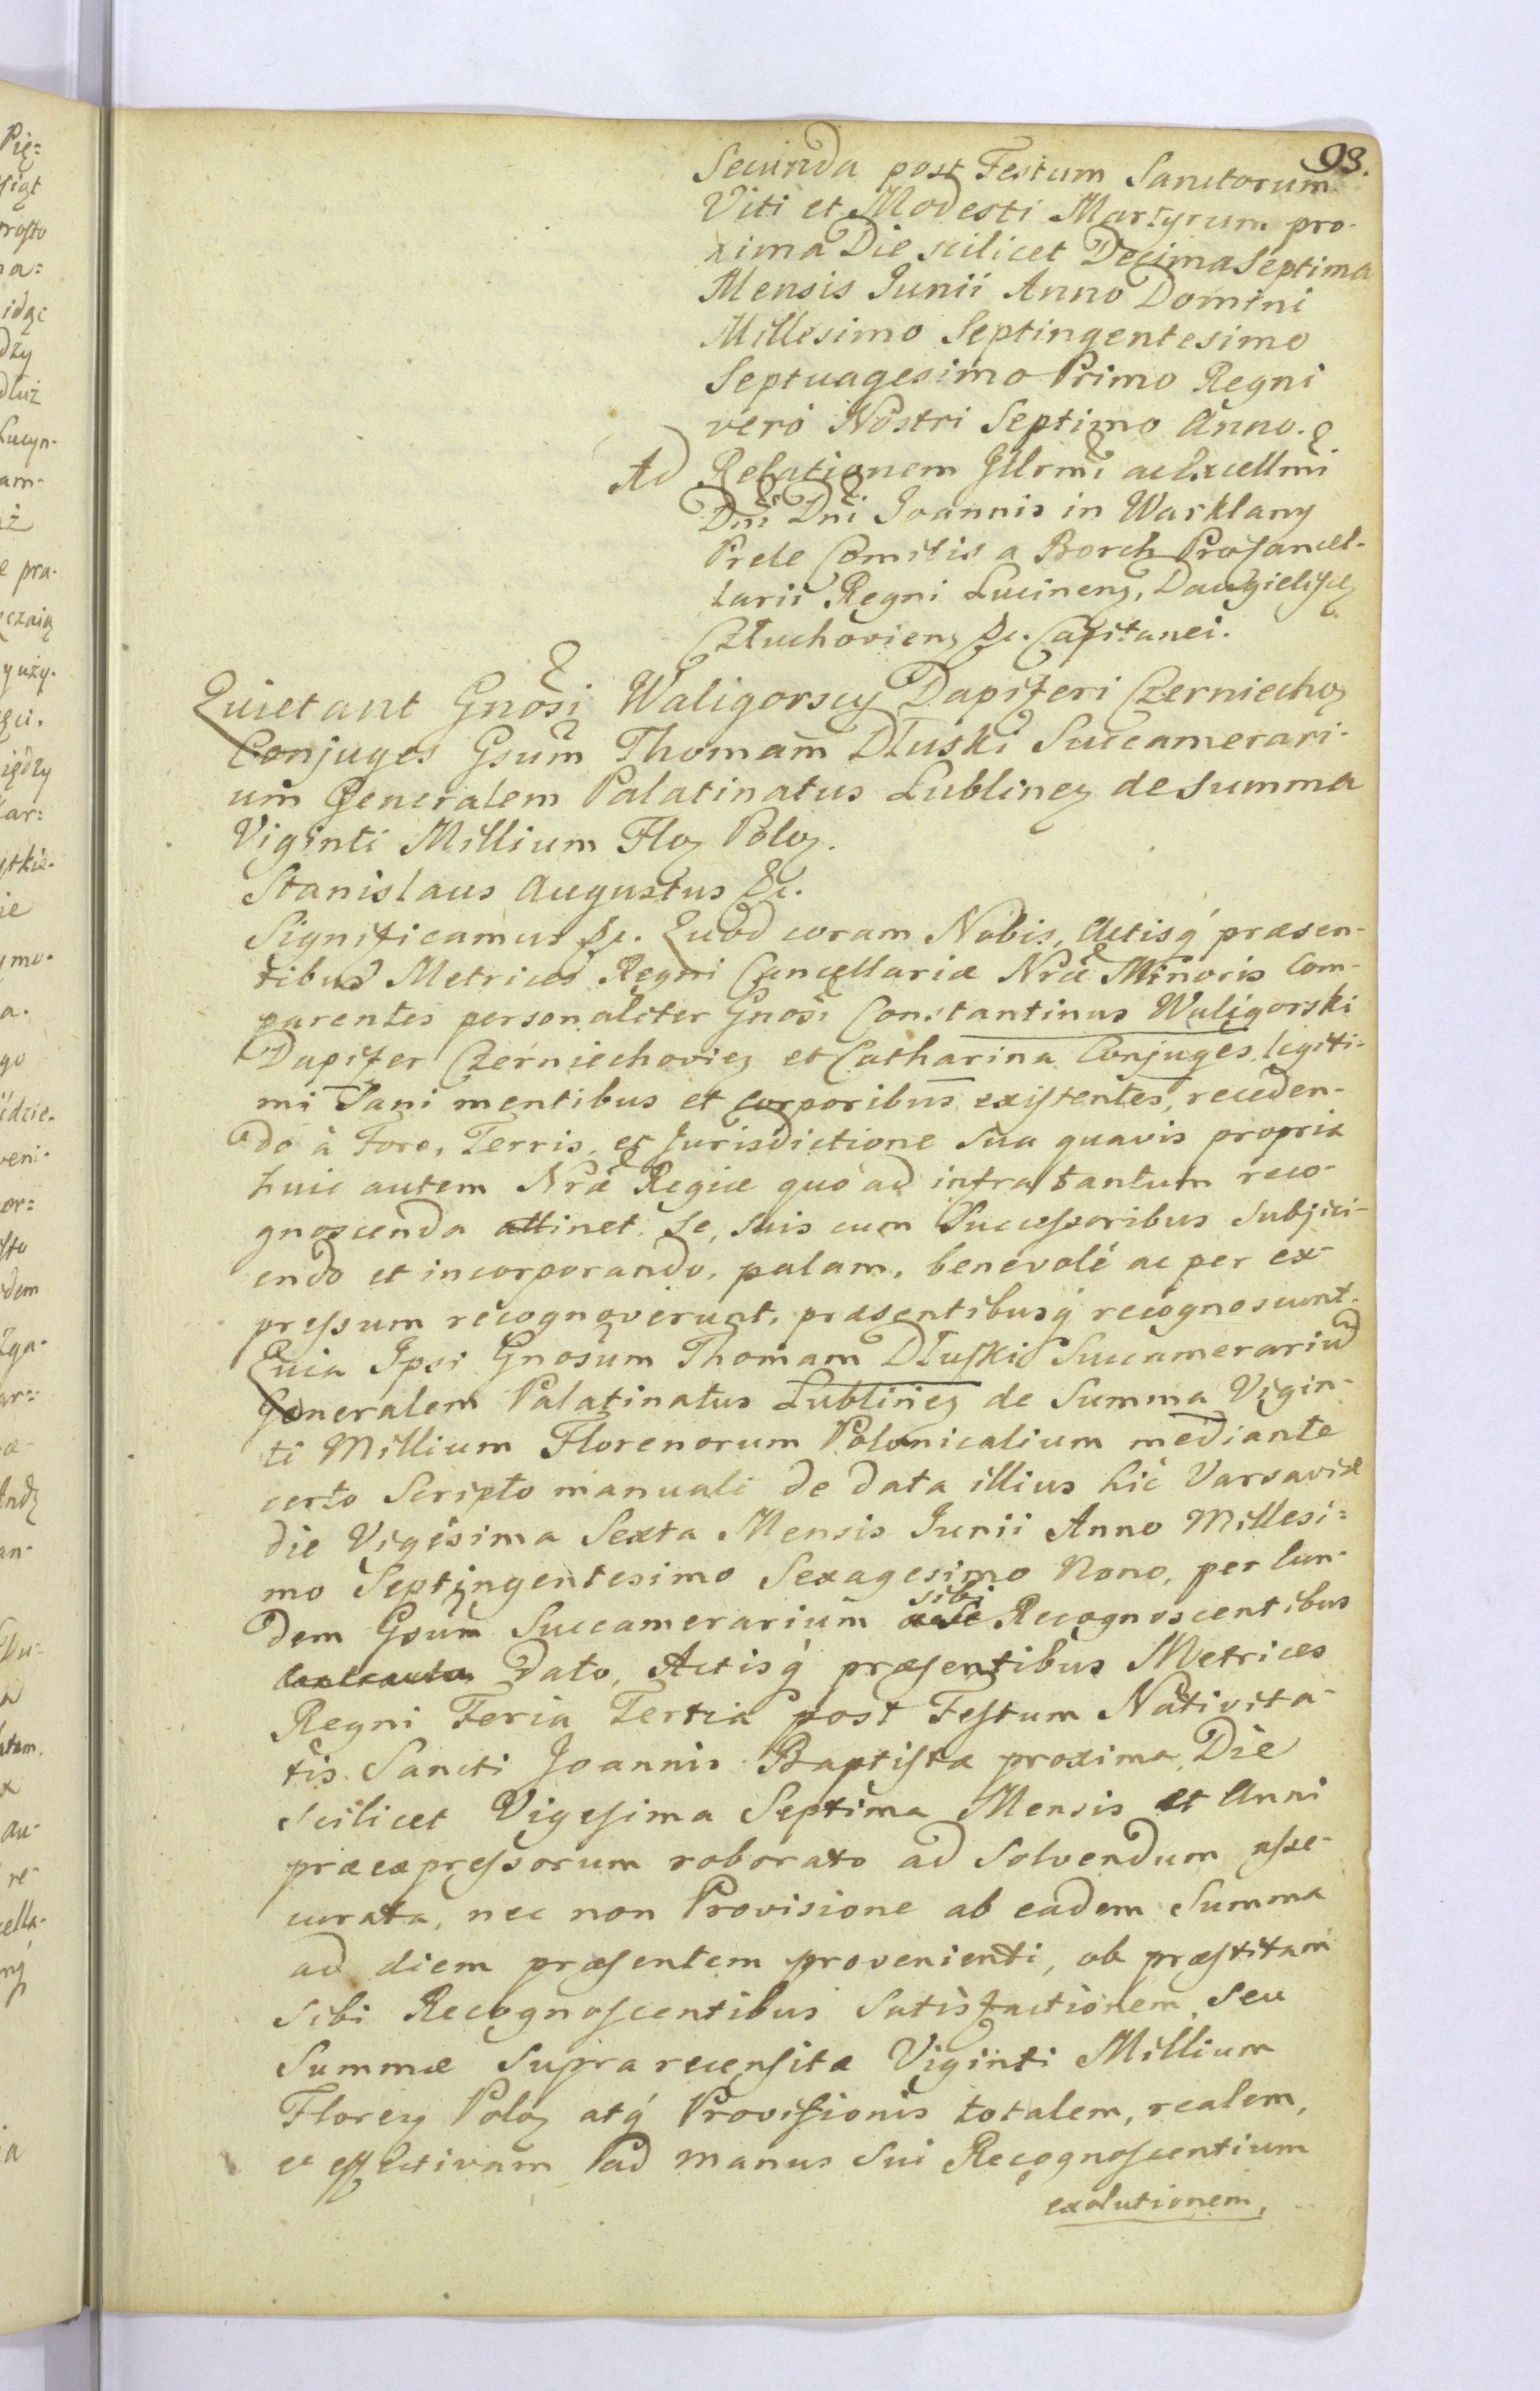 93.
Secunda post Festum Sanctorum
Viti et Modesti Martyrum pro-
xima Die scilicet Decima Septima
Mensis Junii Anno Domini
Millesimo Septingentesimo
Septuagesimo Primo Regni
veró Nostri Septimo Anno.
Ad Relationem Jllrmi ac Excellmi
Dni Dni Joannis in Warklany
Prele Comitis a Borch Procancel-
larii Regni Lucinens,
Człuchoviens &c. Capitanei.
Quietant Gnosi Waligorscy Dapiferi Czerniechoȝ
Conjuges Gsum Thomam Dłuski Succamerari-
um Generalem Palatinatus Lublineȝ de Summa
Viginti Millium Floȝ Poloȝ.
Stanislaus Augustus &c.
Significamus &c. Quod coram Nobis, Actisq́ præsen-
tibus Metrices Regni Cancellariæ Nræ Minoris Com-
parentes personaliter Gnosi Constantinus Waligorski
Dapifer Czerniechovieȝ et Catharina Conjuges legiti-
mi Sani mentibus et corporibus existentes, receden-
do à Foro, Terris, et Jurisdictione sua quavis propria
huic autem Nræ Regiæ quo ad infra tantum reco-
gnoscenda attinet, se, suis cum Successoribus subjici-
endo et incorporando, palam, benevolé ac per ex-
pressum recognoverunt, præsentibusq́ recognoscunt.
Quia Ipsi Gnosum Thomam Dłuski Succamerariũ
Generalem Palatinatus Lublineȝ de Summa Vigin-
ti Millium Florenorum Polonicalium mediante
certo Scripto manuali de data illius hic Varsaviæ
die Vigesima Sexta Mensis Junii Anno Millesi-
mo Septingentesimo Sexagesimo Nono, per Eun-
dem Gsum Succamerarium sibi Recognoscentibus
Dato, Actisq́ præsentibus Metrices
Regni Feria Tertia post Festum Nativita-
tis Sancti Joannis Baptistæ proxima, Die
scilicet Vigesima Septima Mensis et Anni
præexpressorum roborato ad Solvendum asse-
curata, nec non Provisione ab eadem Summa
ad diem præsentem provenienti, ob præstitam
sibi Recognoscentibus Satisfactionem, seu
Summæ Supra recensitæ Viginti Millium
Floreȝ Poloȝ atq́ Provisionis totalem, realem,
et effectivam ad manus Sui Recognoscentium
exolutionem,